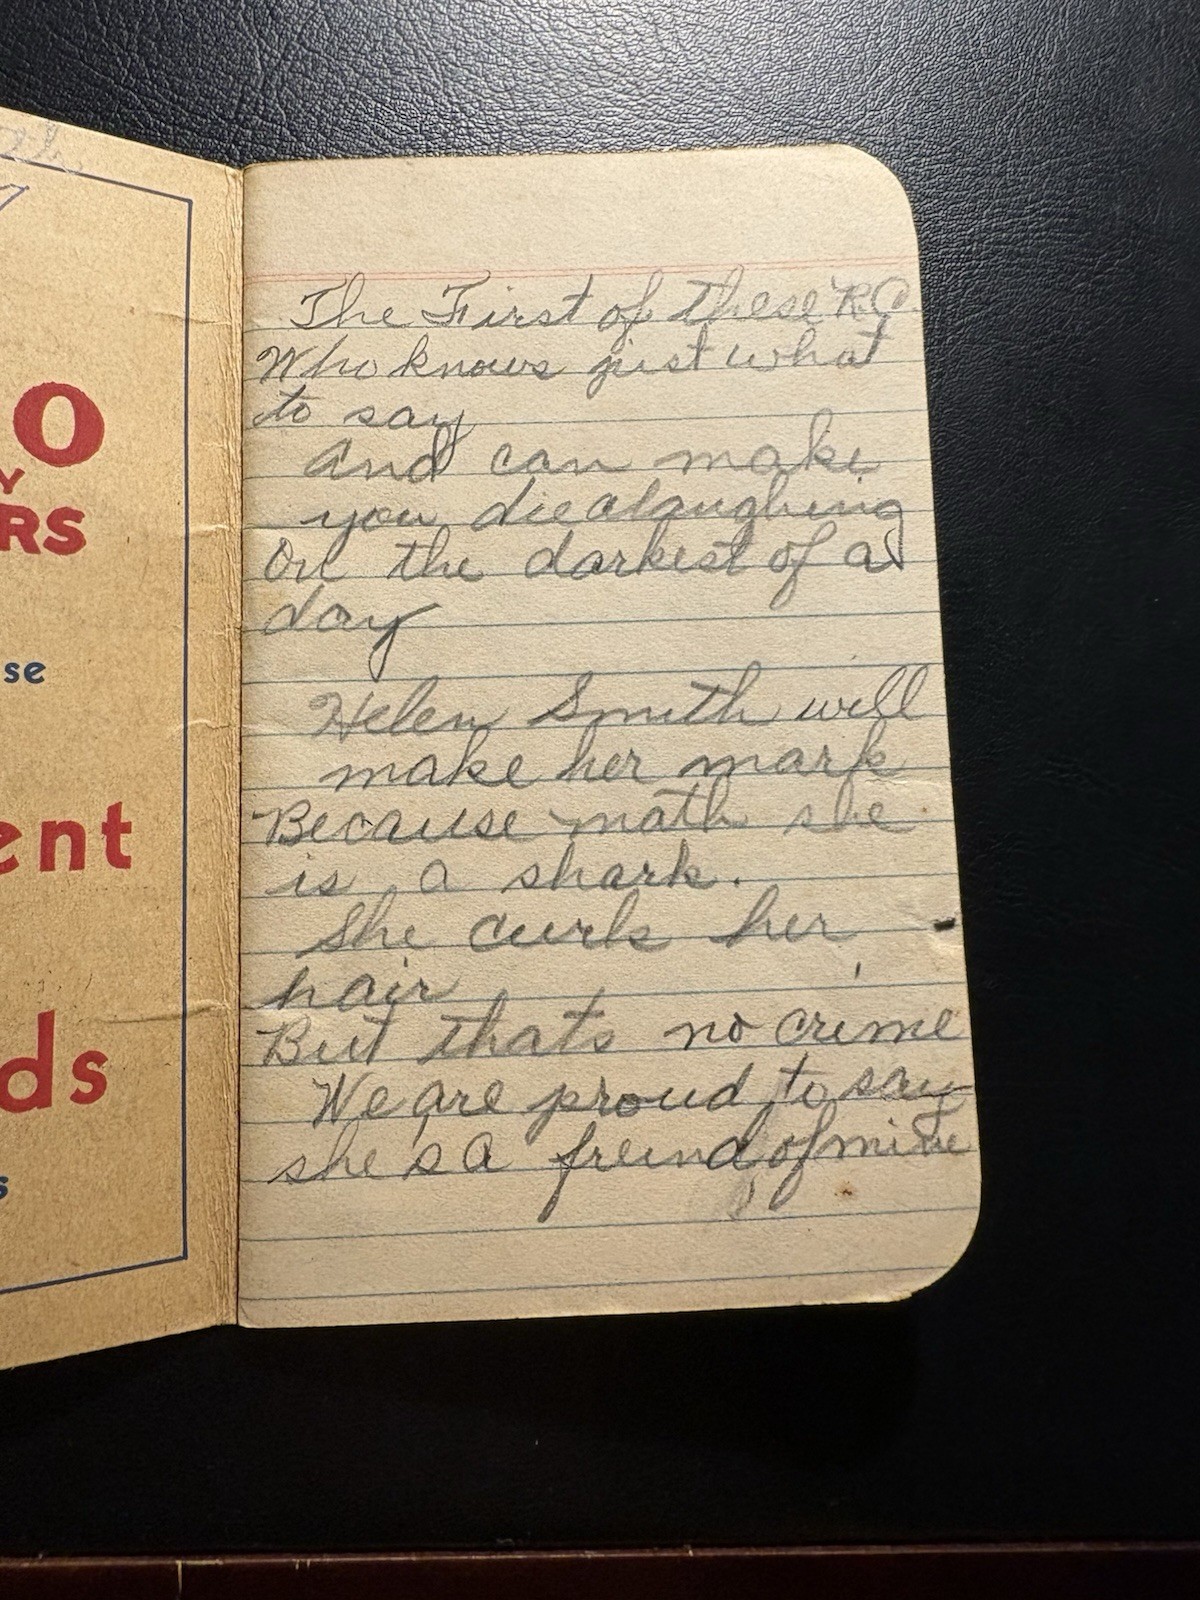 O
Y
RS
se
ent
ds
s
The First of these R.C.
Who knows just what
to say
And can make
you die alaughing
On the darkest of a
day
Helen Smith will
make her mark
Because math she
is a shark.
She curls her
hair
But thats no crime
We are proud to say
she's a freind of mine